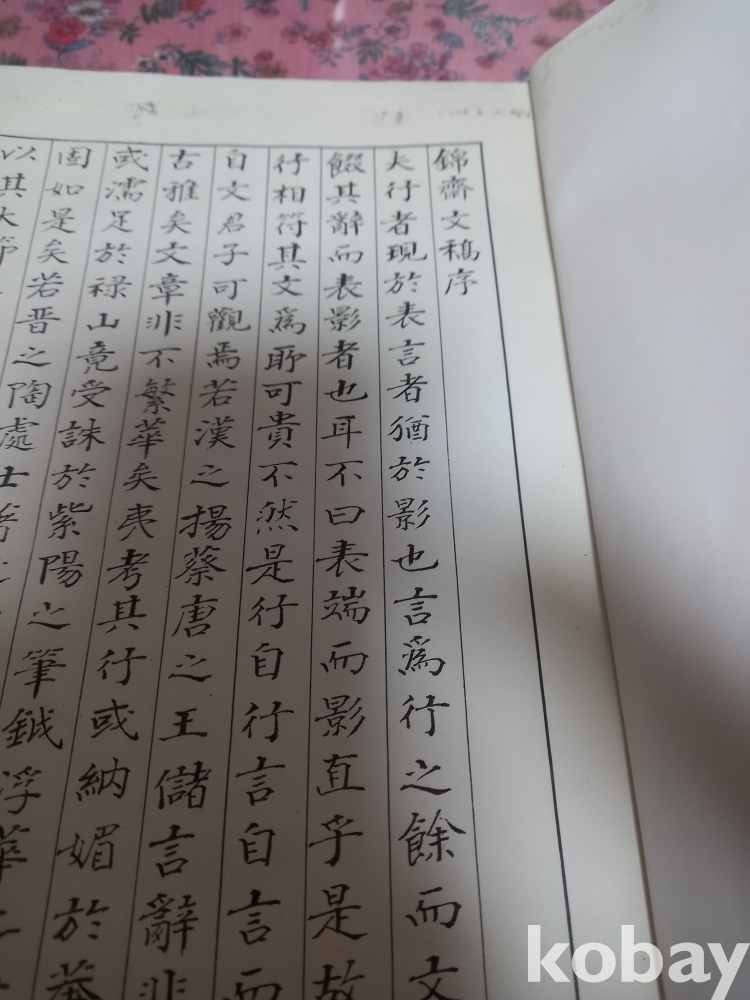 錦齋文稿序
夫行者現於表言者猶於影也言爲行之餘而文
餟其辭而表影者也耳不曰表端而影直乎是故
行相符其文爲耶可貴不然是行自行言自言而
自文君子可觀焉若漢之揚蔡唐之王儲言辭非
古雅矣文章非不繁華矣夷考其行或納媚於莽
或濡足於祿山竟受誅於紫陽之筆鉞浮華
固如是矣若晋之陶處士
以其大節
kobay